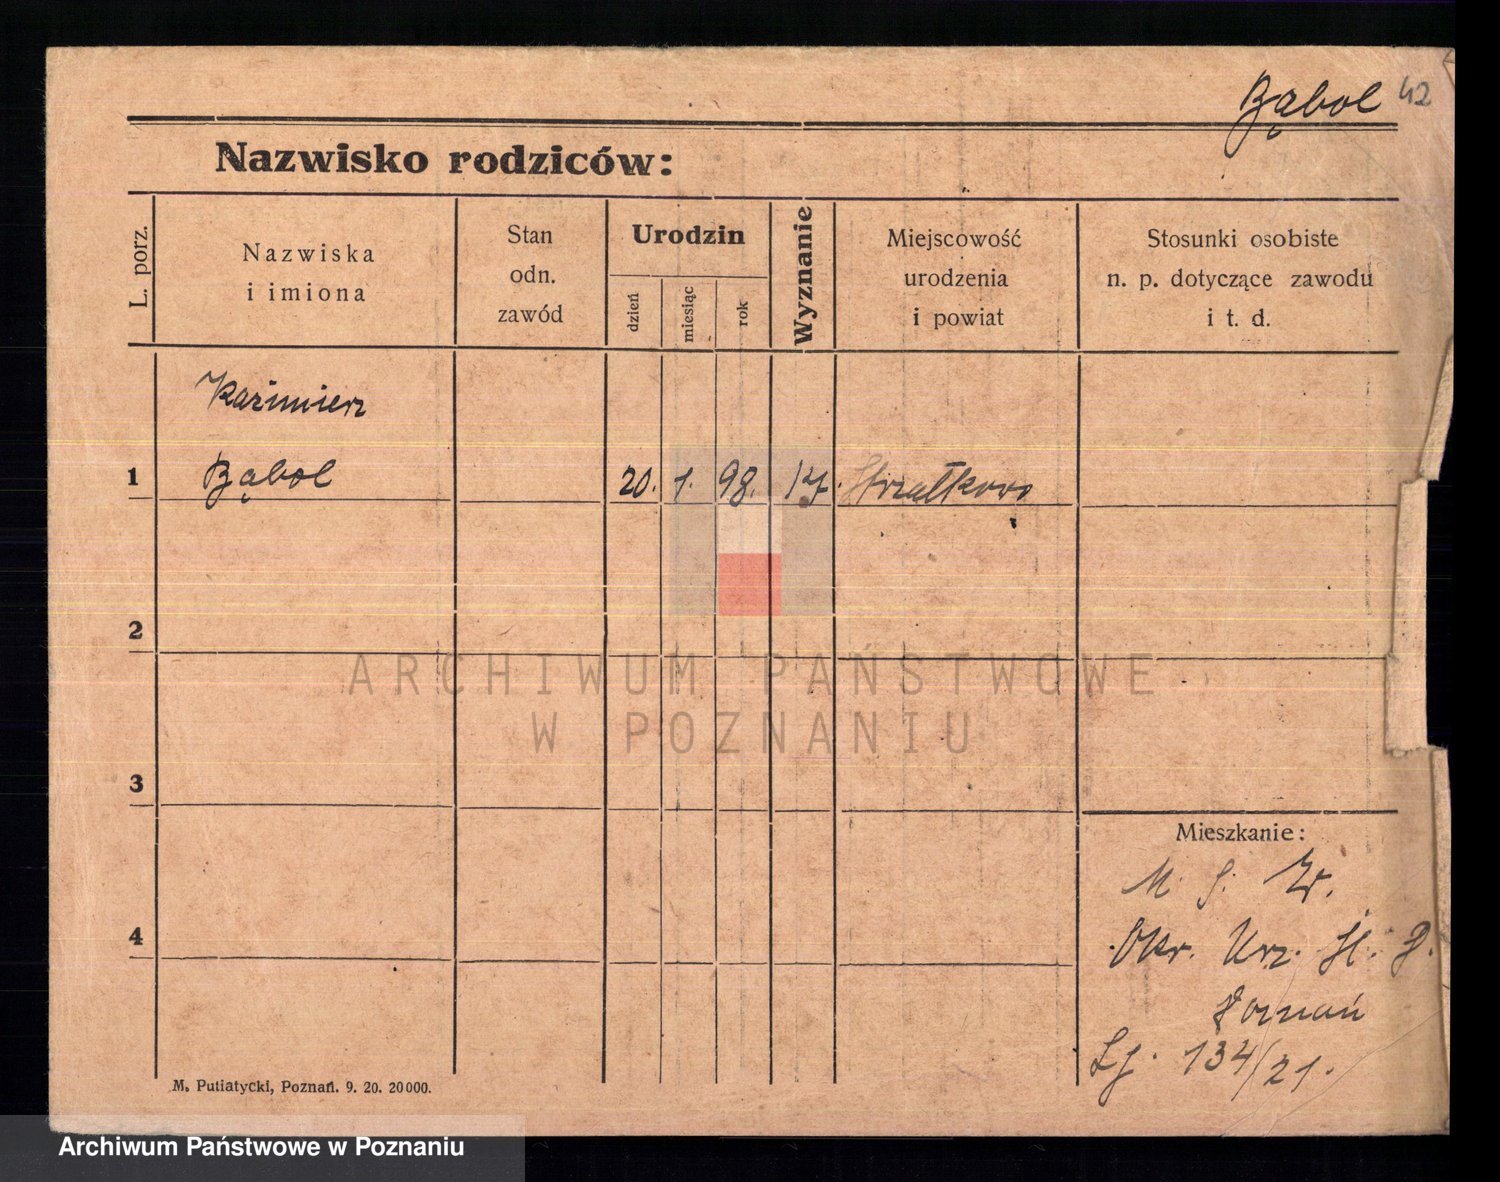 Bąbol 42
Nazwisko rodziców:
L. porz.
Nazwiska
i imiona
Stan
odn.
zawód
Urodzin
dzień
miesiąc
rok
Wyznanie
Miejscowość
urodzenia
i powiat
Stosunki osobiste
n. p. dotyczące zawodu
i t. d.
Kazimierz
1 Bąbol 20. 1. 98. Strzałkowo
2
ARCHIWUM PAŃSTWOWE
W POZNANIU
3
Mieszkanie:
M. S. W.
4 Okr. Urz. P.
Poznań
134/21.
M. Putiatycki, Poznań. 9. 20. 20000.
Archiwum Państwowe w Poznaniu